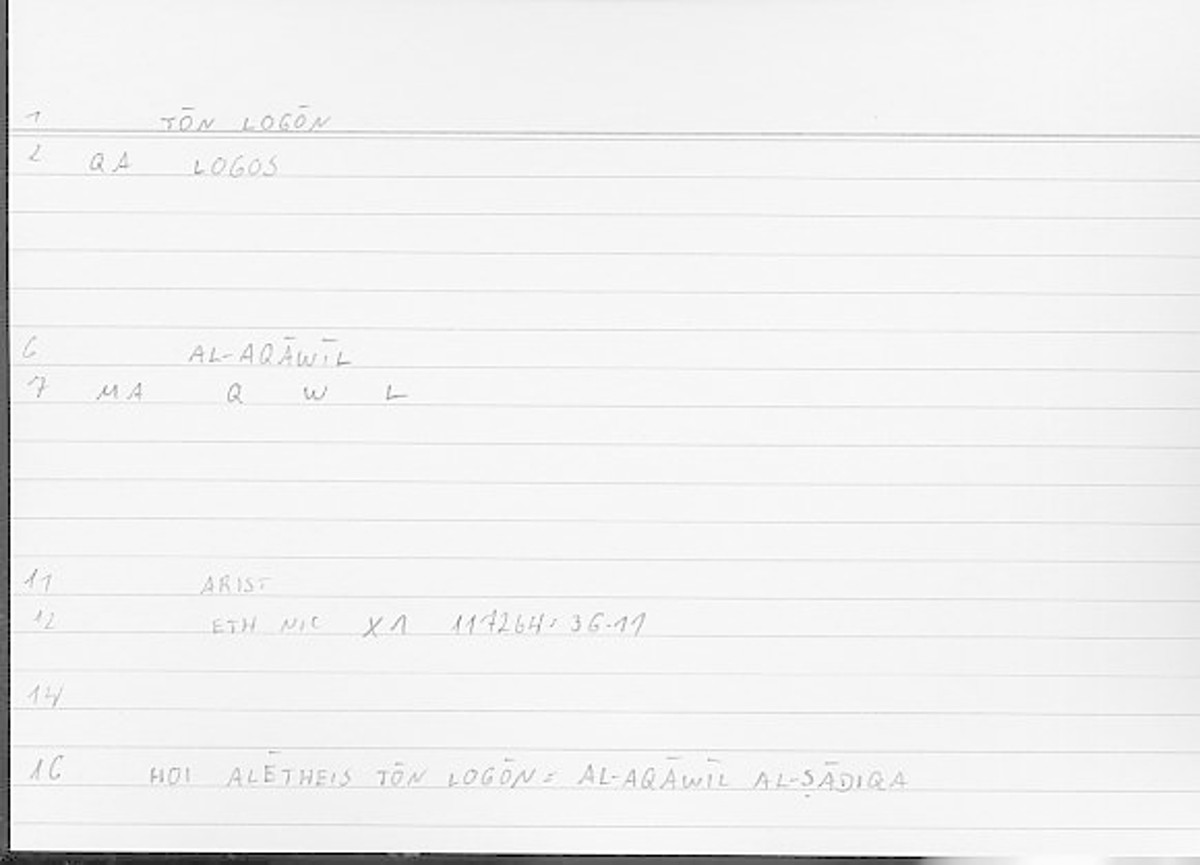 1 TŌN LOGŌN
2 QA LOGOS
6 AL-AQĀWĪL
7 MA Q W L
11 ARIST
12 ETH NIC X1 117264: 36.11
14
16 HOI ALĒTHEIS TŌN LOGŌN = AL-AQĀWĪL AL-ṢĀDIQA